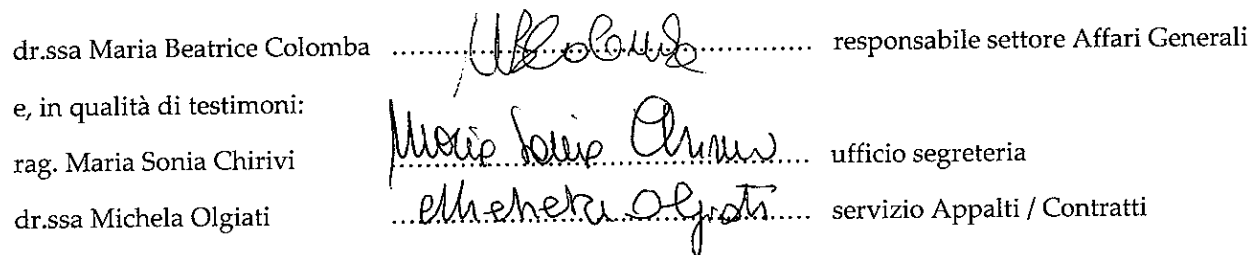 dr.ssa Maria Beatrice Colomba ........ MBColomba ........ responsabile settore Affari Generali
e, in qualità di testimoni:
rag. Maria Sonia Chirivi ........ Maria Sonia Chirivi ........ ufficio segreteria
dr.ssa Michela Olgiati ........ Michela Olgiati ........ servizio Appalti / Contratti